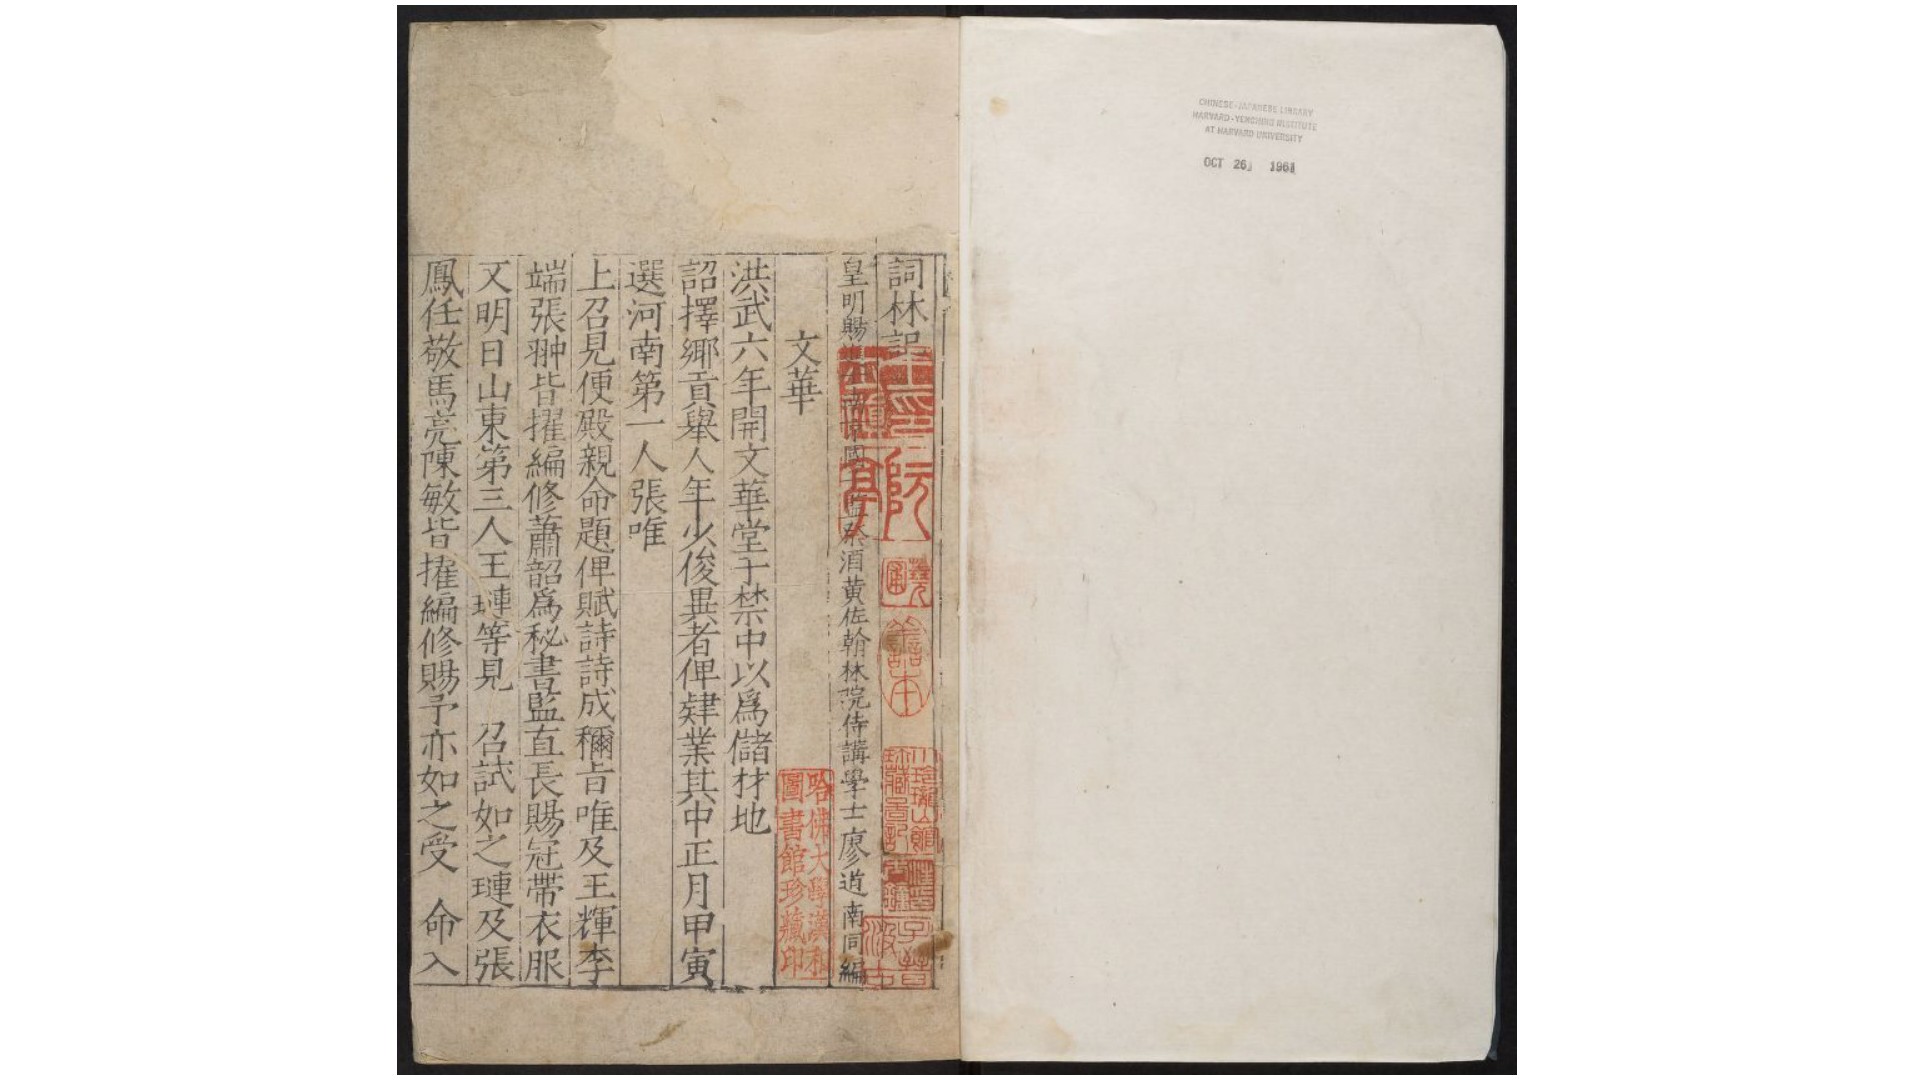 詞林記
皇明賜進士南京國子監祭酒黃佐翰林院侍講學士廖道南同編
文華
洪武六年開文華堂于禁中以爲儲材地
詔擇鄉貢舉人年少俊異者俾肄業其中正月甲寅
選河南第一人張唯
上召見便殿親命題俾賦詩詩成稱旨唯及王輝李
端張翀皆擢編修蕭韶爲秘書監直長賜冠帶衣服
又明日山東第三人王璉等見 召試如之璉及張
鳳任敬馬亮陳敏皆擢編修賜予亦如之受 命入
善本
小玲瓏山館
珍藏圖記
哈佛大學漢和
圖書館珍藏印
CHINESE-JAPANESE LIBRARY
HARVARD-YENCHING INSTITUTE
AT HARVARD UNIVERSITY
OCT 26 1961